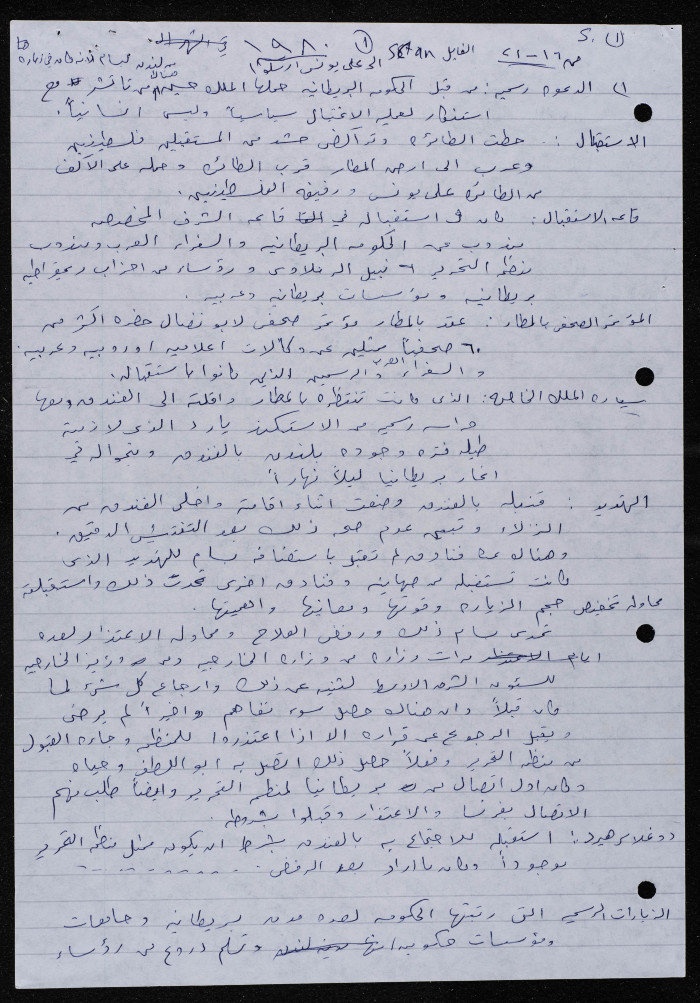 S. (1)
ص ١٦-٢١ الفايل Satan ① ١٩٨٠
الى علي يونس ارسلوا
بسام ثلاثة كان في زيارة
١) الدعوه رسمي: من قبل الحكومه البريطانيه حملها الملك حسين من تاتشر مع
استنكار لعمليه الاغتيال سياسياً وليس انسانياً.
الاستقبال: حطت الطائره وتراكض حشد من المستقبلين فلسطينين
وعرب الى ارض المطار قرب الطائره وحمله على الاكف
من الطائره علي يونس ورفيقه الفلسطينين.
قاعه الاستقبال: كان في استقباله في قاعه الشرف المخصصه
مندوب عن الحكومه البريطانيه والسفراء العرب ومندوب
منظمه التحرير نبيل الرملاوي ورؤساء من احزاب ديمقراطيه
بريطانيه ومؤسسات بريطانيه وعربيه.
المؤتمر الصحفي بالمطار: عقد بالمطار مؤتمر صحفي لابو نضال حضره اكثر من
٦٠ صحفياً ممثلين عن وكالات اعلاميه اوروبيه وعربيه.
والسفراء العرب والرسمين الذين كانوا باستقباله.
سياره الملك الخاصه: الذي كانت تنتظره بالمطار واقلته الى الفندق ومعها
حراسه رسميه من الاسكتلنديارد الذي لازمته
طيله فتره وجوده بلندن بالفندق وتجواله في
انحاء بريطانيا ليلاً نهاراً
التهديد: قنبله بالفندق وضعت اثناء اقامته واخلي الفندق من
النزلاء وتبين عدم صحه ذلك بعد التفتيش الدقيق.
وهناك عده فنادق لم تقبل باستضافه بسام للتهديد الذي
كانت تستقبله من صهاينه وفنادق اخرى تحدت ذلك واستقبلته
محاوله تخفيض حجم الزياره وقوتها ومعانيها واهميتها.
تحدى بسام ذلك ورفض العلاج ومحاوله الاعتذار لعده
مرات وزاره من وزاره الخارجيه ومن وزير الخارجيه
لشئون الشرق الاوسط لثنيه عن ذلك وارجاع كل شئ لما
كان قبلاً وان هناك حصل سوء تفاهم واخيراً لم يرضى
ويقبل الرجوع عن قراره الا اذا اعتذروا للمنظمه وجاءه القبول
من منظمه التحرير وفعلاً حصل ذلك اتصل به ابو اللطف وحياه
وكان اول اتصال من بريطانيا لمنظمه التحرير وايضاً طلب منهم
الاتصال بفرنسا والاعتذار وقبلوا بشروطه.
دوغلاس هيرد: استقبله للاجتماع به بالفندق بشرط ان يكون ممثل منظمه التحرير
موجوداً وكان ما اراد بعد الرفض . . . . . . . .
الزيارات الرسميه التي رتبتها الحكومه لعده مدن بريطانيه وجامعات
ومؤسسات حكوميه وتسلم دروع من رؤساء